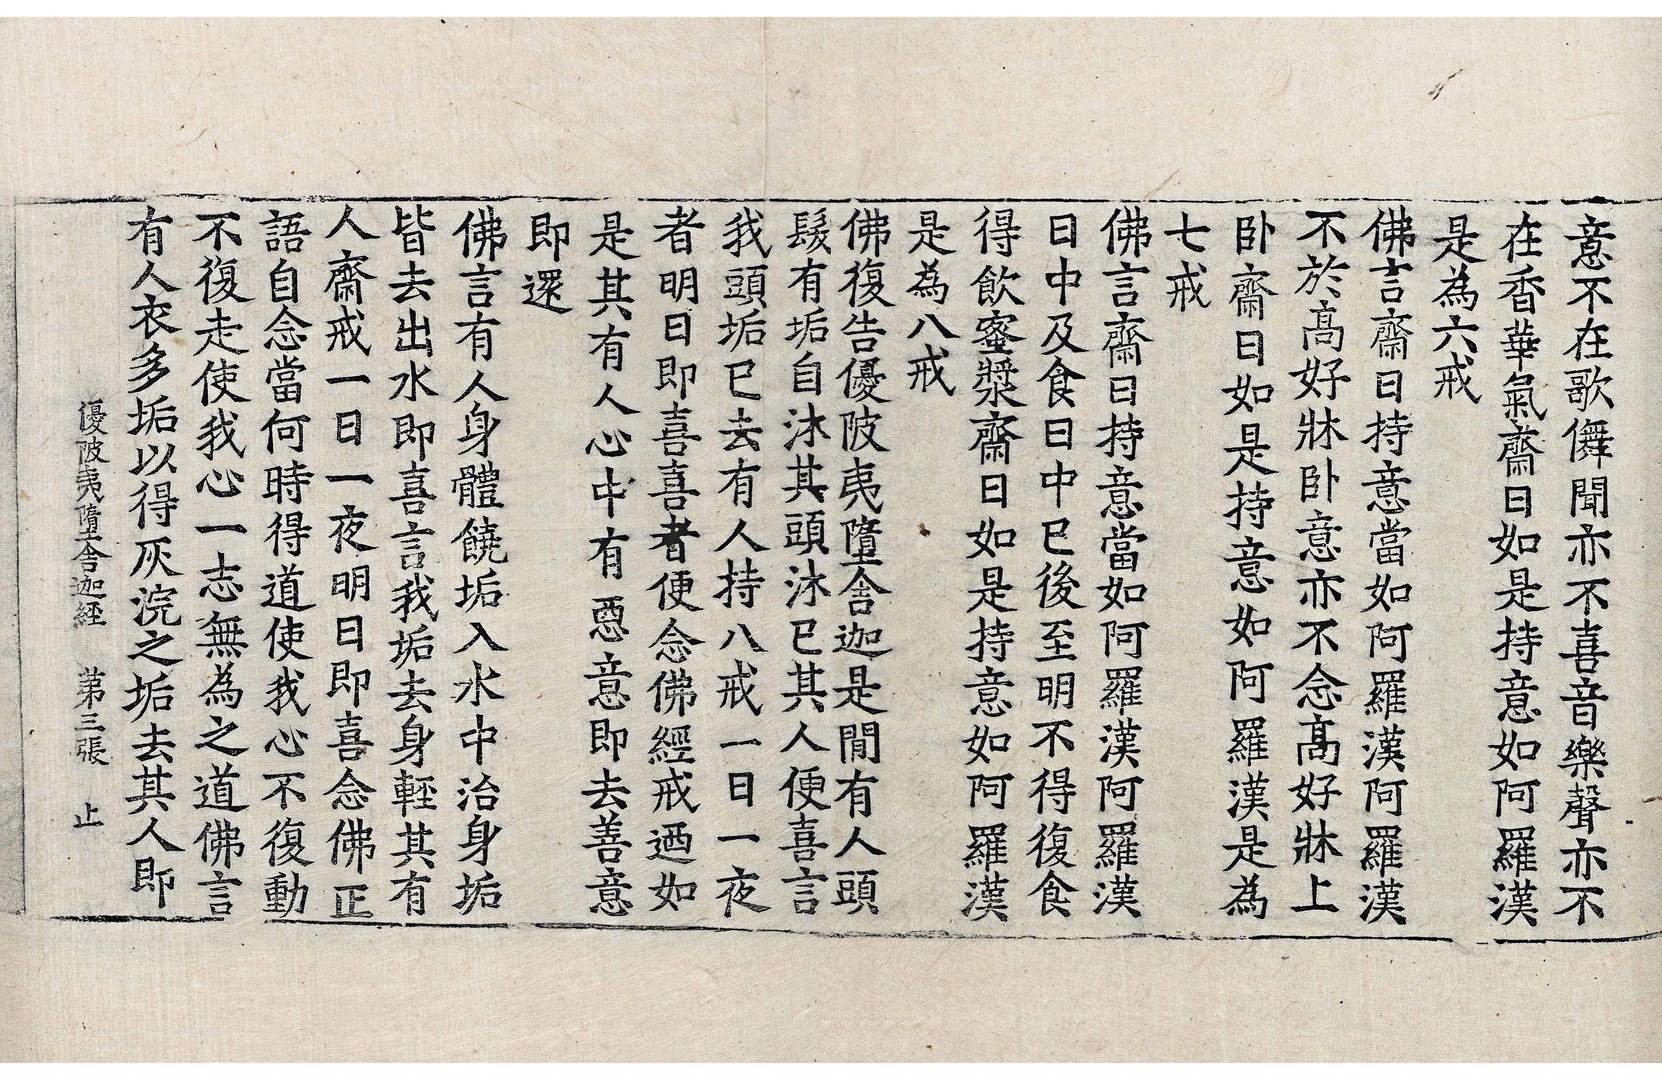 意不在歌儛聞亦不喜音樂聲亦不
在香華氣齋日如是持意如阿羅漢
是為六戒
佛言齋日持意當如阿羅漢阿羅漢
不於髙好牀卧意亦不念髙好牀上
卧齋日如是持意如阿羅漢是為
七戒
佛言齋日持意當如阿羅漢阿羅漢
日中及食日中已後至明不得復食
得飲蜜漿齋日如是持意如阿羅漢
是為八戒
佛復告優陂夷墮舍迦是閒有人頭
髮有垢自沐其頭沐已其人便喜言
我頭垢已去有人持八戒一日一夜
者明日即喜喜者便念佛經戒迺如
是其有人心中有惡意即去善意
即還
佛言有人身體饒垢入水中治身垢
皆去出水即喜言我垢去身輕其有
人齋戒一日一夜明日即喜念佛正
語自念當何時得道使我心不復動
不復走使我心一志無為之道佛言
有人衣多垢以得灰浣之垢去其人即
優陂夷墮舍迦経 第三張 止